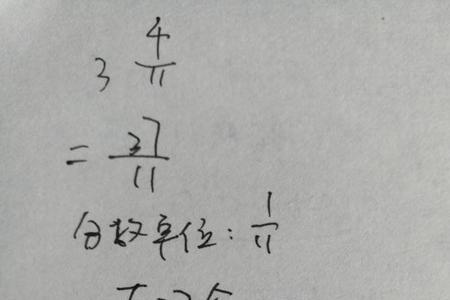 3 4/11
= 37/11
分数单位: 1/11